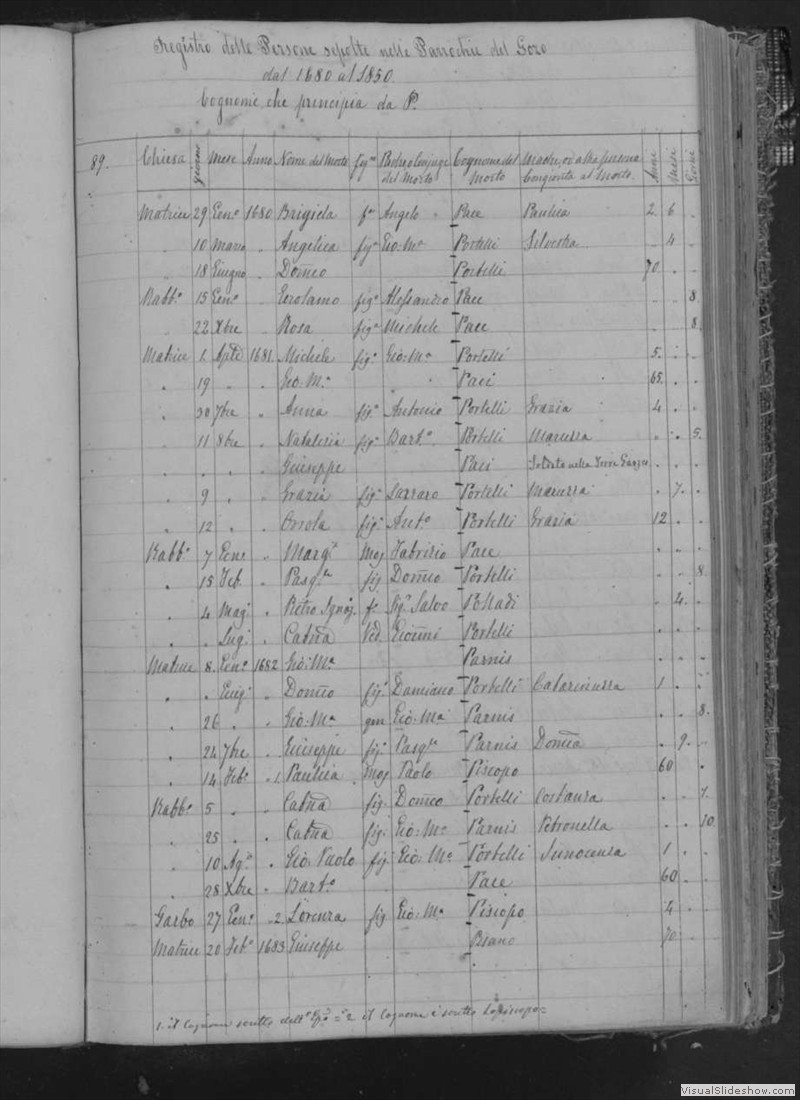 Registro delle Persone sepolte nelle Parrochie del Gozo
dal 1680 al 1850.
Cognomi che principia da P.
89. Chiesa Giorno Mese Anno Nome del Morto Padre o Conjuge del Morto Cognome del Morto Madre, od altra persona Congionta al Morto. Anni Mesi Giorni
Matrice 29 Genº 1680 Brigida fª Angelo Pace Paulica 2 6 .
. 10 Marzo . Angelica figª Gio: Mª Portelli Silvestra . 4 .
. 18 Giugno . Domco Portelli 70 . .
Rabbº 15 Genº . Gerolamo figº Alessandro Pace . . 8
. 22 Xbre . Rosa figª Michele Pace . . 8
Matrice 1. Aple 1681. Michele figº Gio: Mª Portelli 5 . .
. 19 . . Gio: Mª . Paci 65 . .
. 30 7bre . Anna figª Antonio Portelli Grazia 4 . .
. 11 8bre . Natalizia figª Bartº Portelli . . 5.
. . . . Giuseppe Paci Soldato nella Torre Garzes . . .
. 9 . . Grazia figª Lazzaro Portelli . 7. .
. 12 . . Orsola figª Antº Portelli Grazia 12 . .
Rabbº 7 Genº . Margª Mog Fabrizio Pace . . .
. 15 Feb. . Pasqle fig. Domco Portelli . . 8
. 4 Mag. . Pietro fº Sigr Salvo . 4. .
. . Lug. . Catna Ved. Gionni Portelli
Matrice 8. Genº 1682 Gio: Mª Parnis
. . Giug. . Domco figº Damiano Portelli Catarinuzza 1 . .
. 26 . . Gio: Mª gem Gio: Mª Parnis . . 8.
. 24 7bre . Giuseppe figº Pasqle Parnis Domca . 9. .
. 14 Febº . 1. Paulica Mog Paolo Piscopo 60 . .
Rabbº 5 . . Catna fig. Domco Portelli Costanza . . 7.
. 25 . . Catna fig. Gio: Mª Parnis Petronella . . 10
. 10 Agº . Gio: Paolo fig. Gio: Mª Portelli Innocenza 1 . .
. 28 Xbre . Bartº Pace 60 . .
Garbo 27 Genº . 2. Lorenza fig Gio: Mª Piscopo 4 . .
Matrice 20 Febº 1683 Giuseppe 70 . .
1. il Cognome scritto = 2 il Cognome è scritto Lo Piscopo =
VisualSlideshow.com